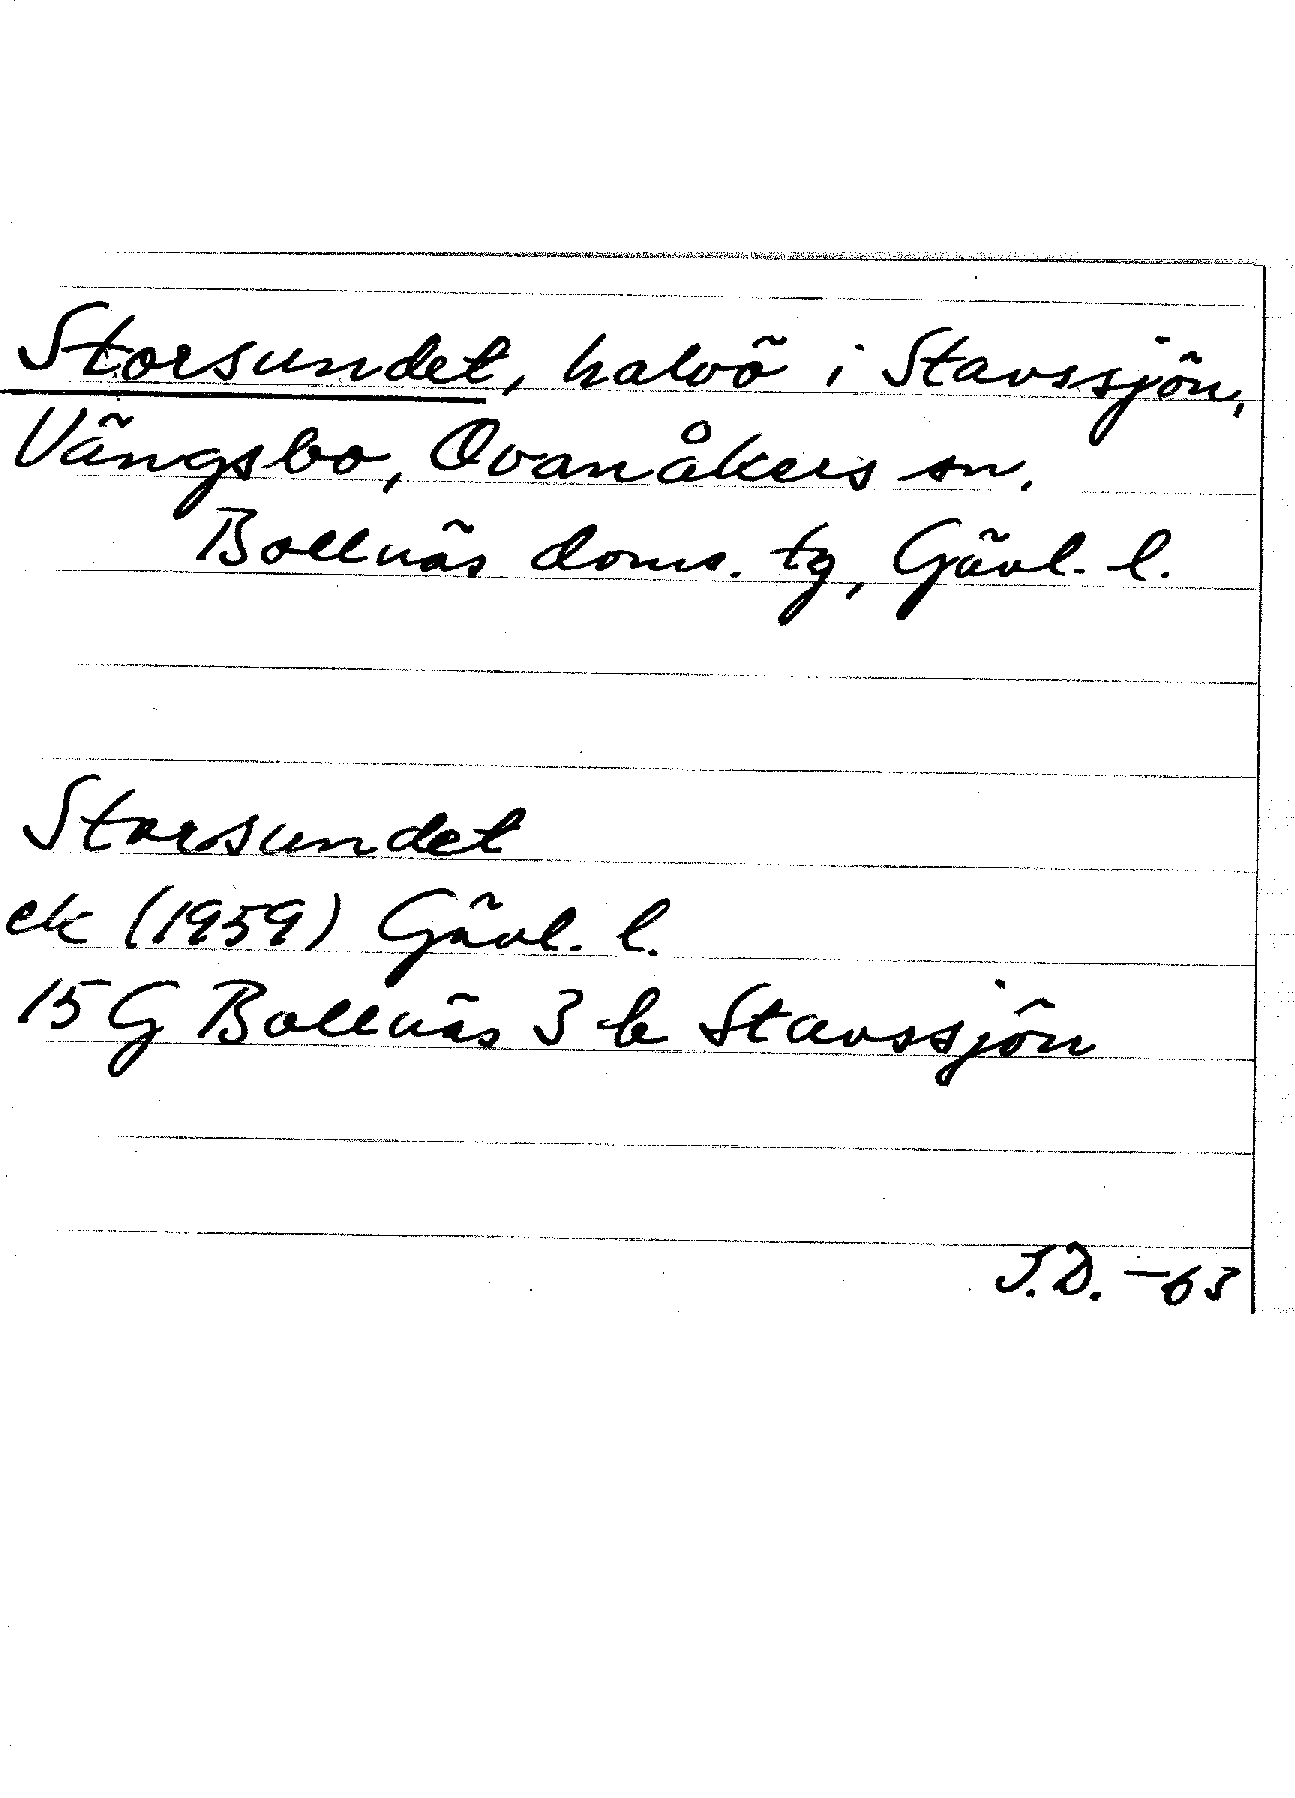 Storsundet, halvö i Stavssjön,
Vängsbo, Ovanåkers sn.
Bollnäs doms. tg, Gävl. l.
Storsundet
ek (1959) Gävl. l.
15 G Bollnäs 3 b Stavssjön
J.D. -63